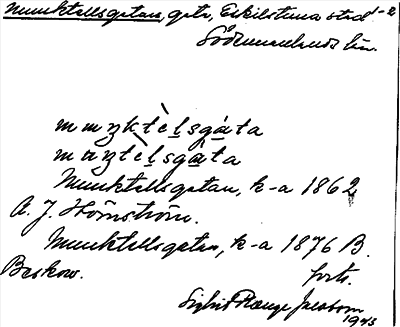 Munktellsgatan, gata, Eskilstuna stad 1-2
Södermanlands län.
muŋktèlsgáta
Munktellsgatan, k-a 1862
A. J. Holmström.
Munktellsgatan, k-a 1876 B.
Beskow. forts.
Sigbrit Plænge Jacobson
1943